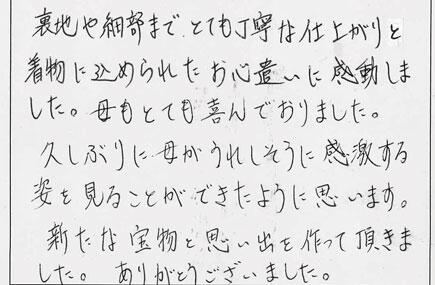 裏地や細部まで、とても丁寧な仕上がりと
着物に込められたお心遣いに感動しま
した。母もとても喜んでおりました。
久しぶりに母がうれしそうに感激する
姿を見ることができたように思います。
新たな宝物と思い出を作って頂きま
した。ありがとうございました。